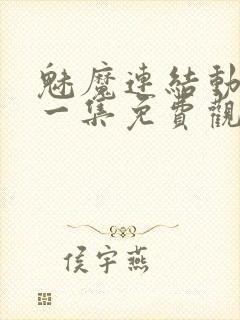 魅魔連結動
一集免費觀
侯宇燕